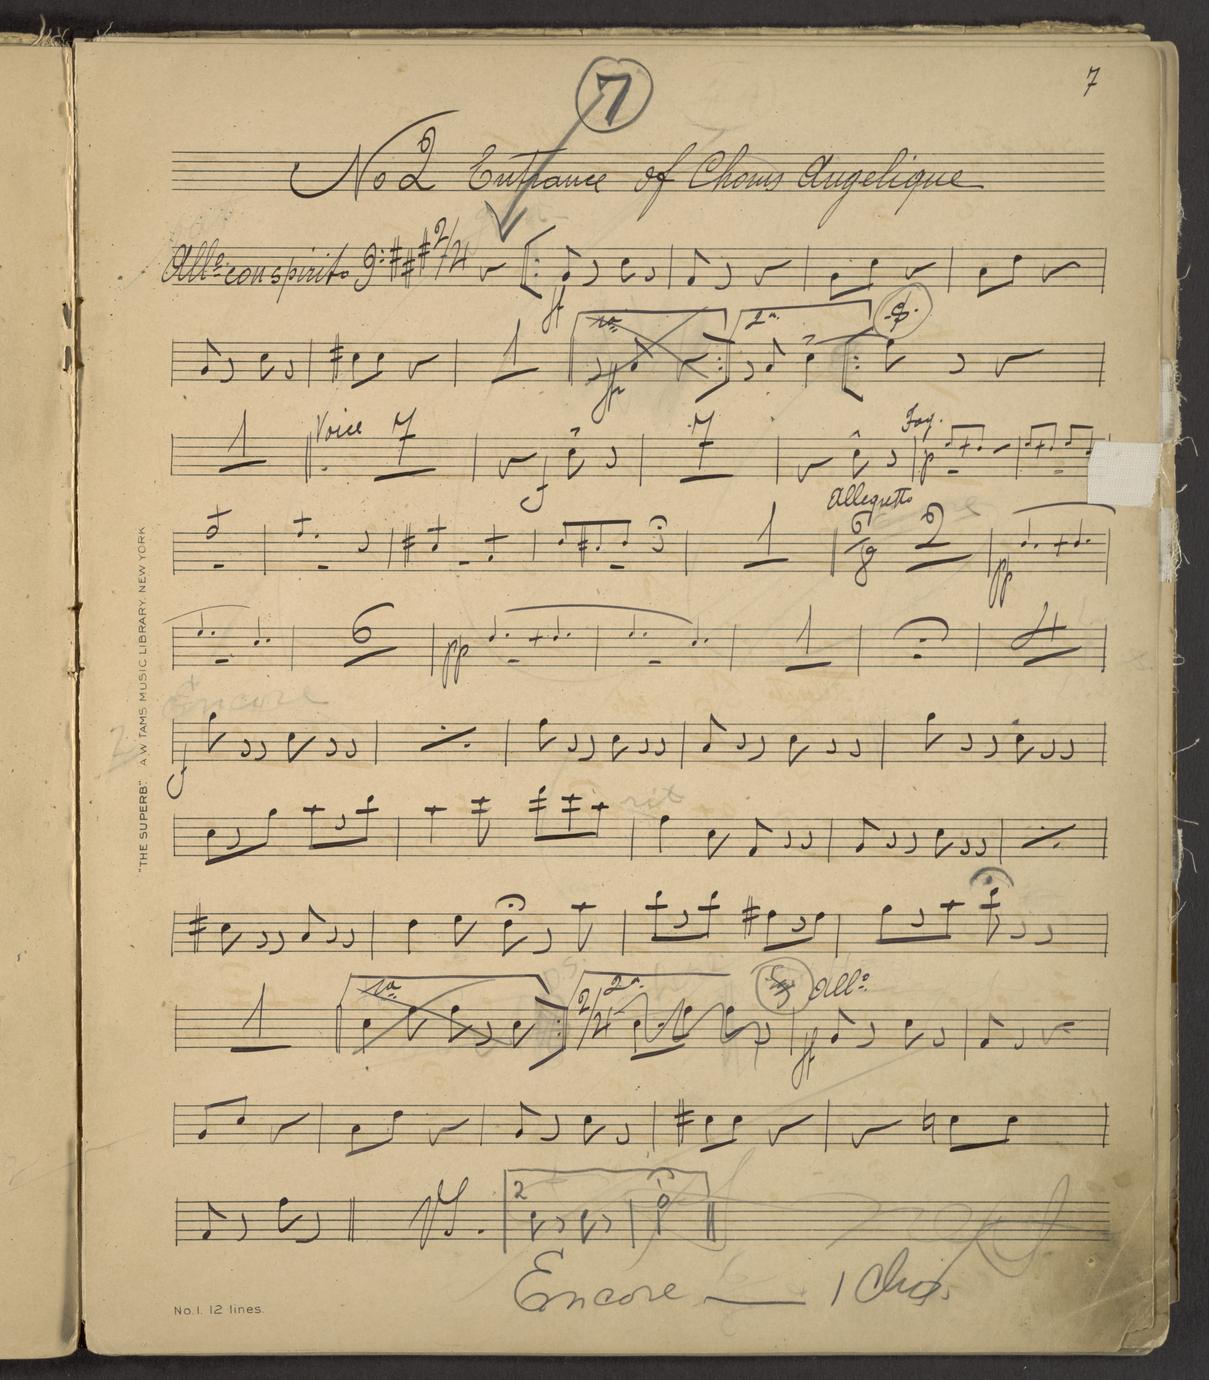 7
7
No 2 Entrance of Chorus Angelique
All° con spirito 2/4
ff
1a 2a
1
ff
Voice
1 7 7 Fag.
f p
Allegretto
1 6/8 2
pp
6 pp 1 4
2 Encore
f
rit
1a 2a All°
1 2/4 ff
VS. 2
Encore — 1 Cho.
"THE SUPERB." A.W. TAMS MUSIC LIBRARY. NEW YORK
No. 1. 12 lines.